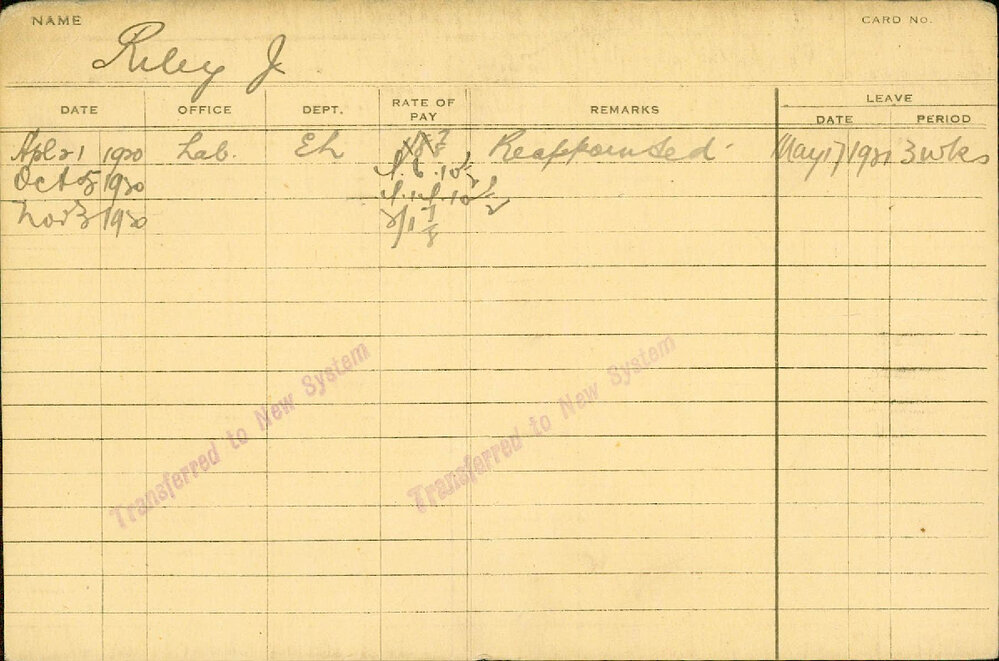 NAME
CARD No.
Riley J
DATE
OFFICE
DEPT.
RATE OF PAY
REMARKS
LEAVE
DATE
PERIOD
Apl 21 1920 Lab. Eh Reappointed. May 17 1921 3 wks
Oct 5 1920
Nov 3 1920
Transferred to New System
Transferred to New System